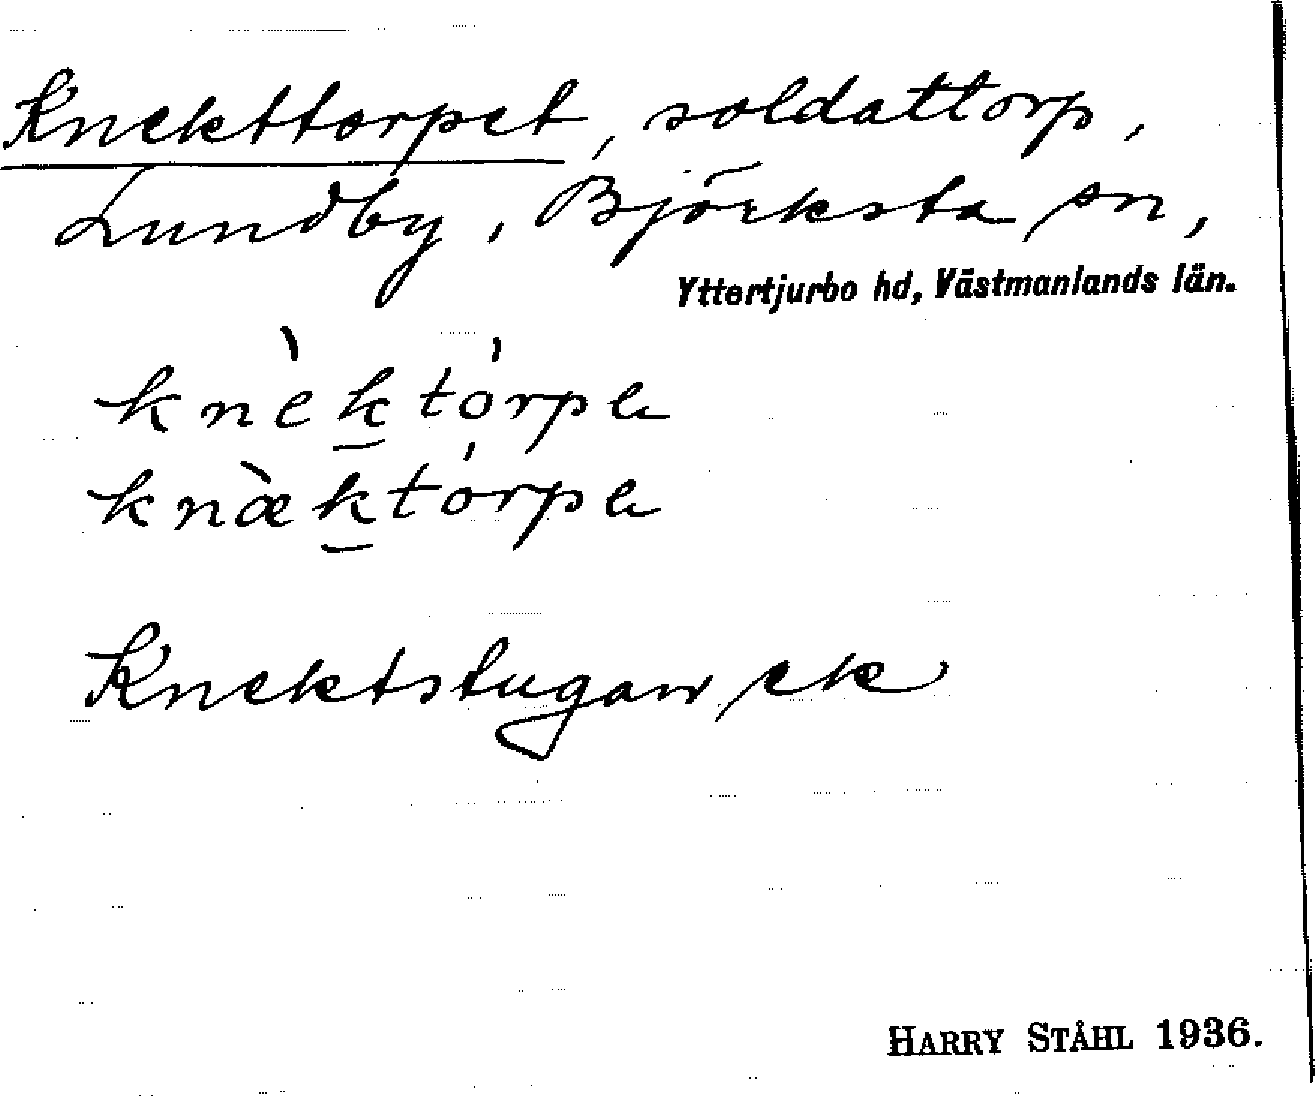 Knekttorpet, soldattorp,
Lundby, Björksta sn,
Yttertjurbo hd, Västmanlands län.
knèk̲tórpe
knæ̀k̲tórpe
Knektstugan ek
HARRY STÅHL 1936.